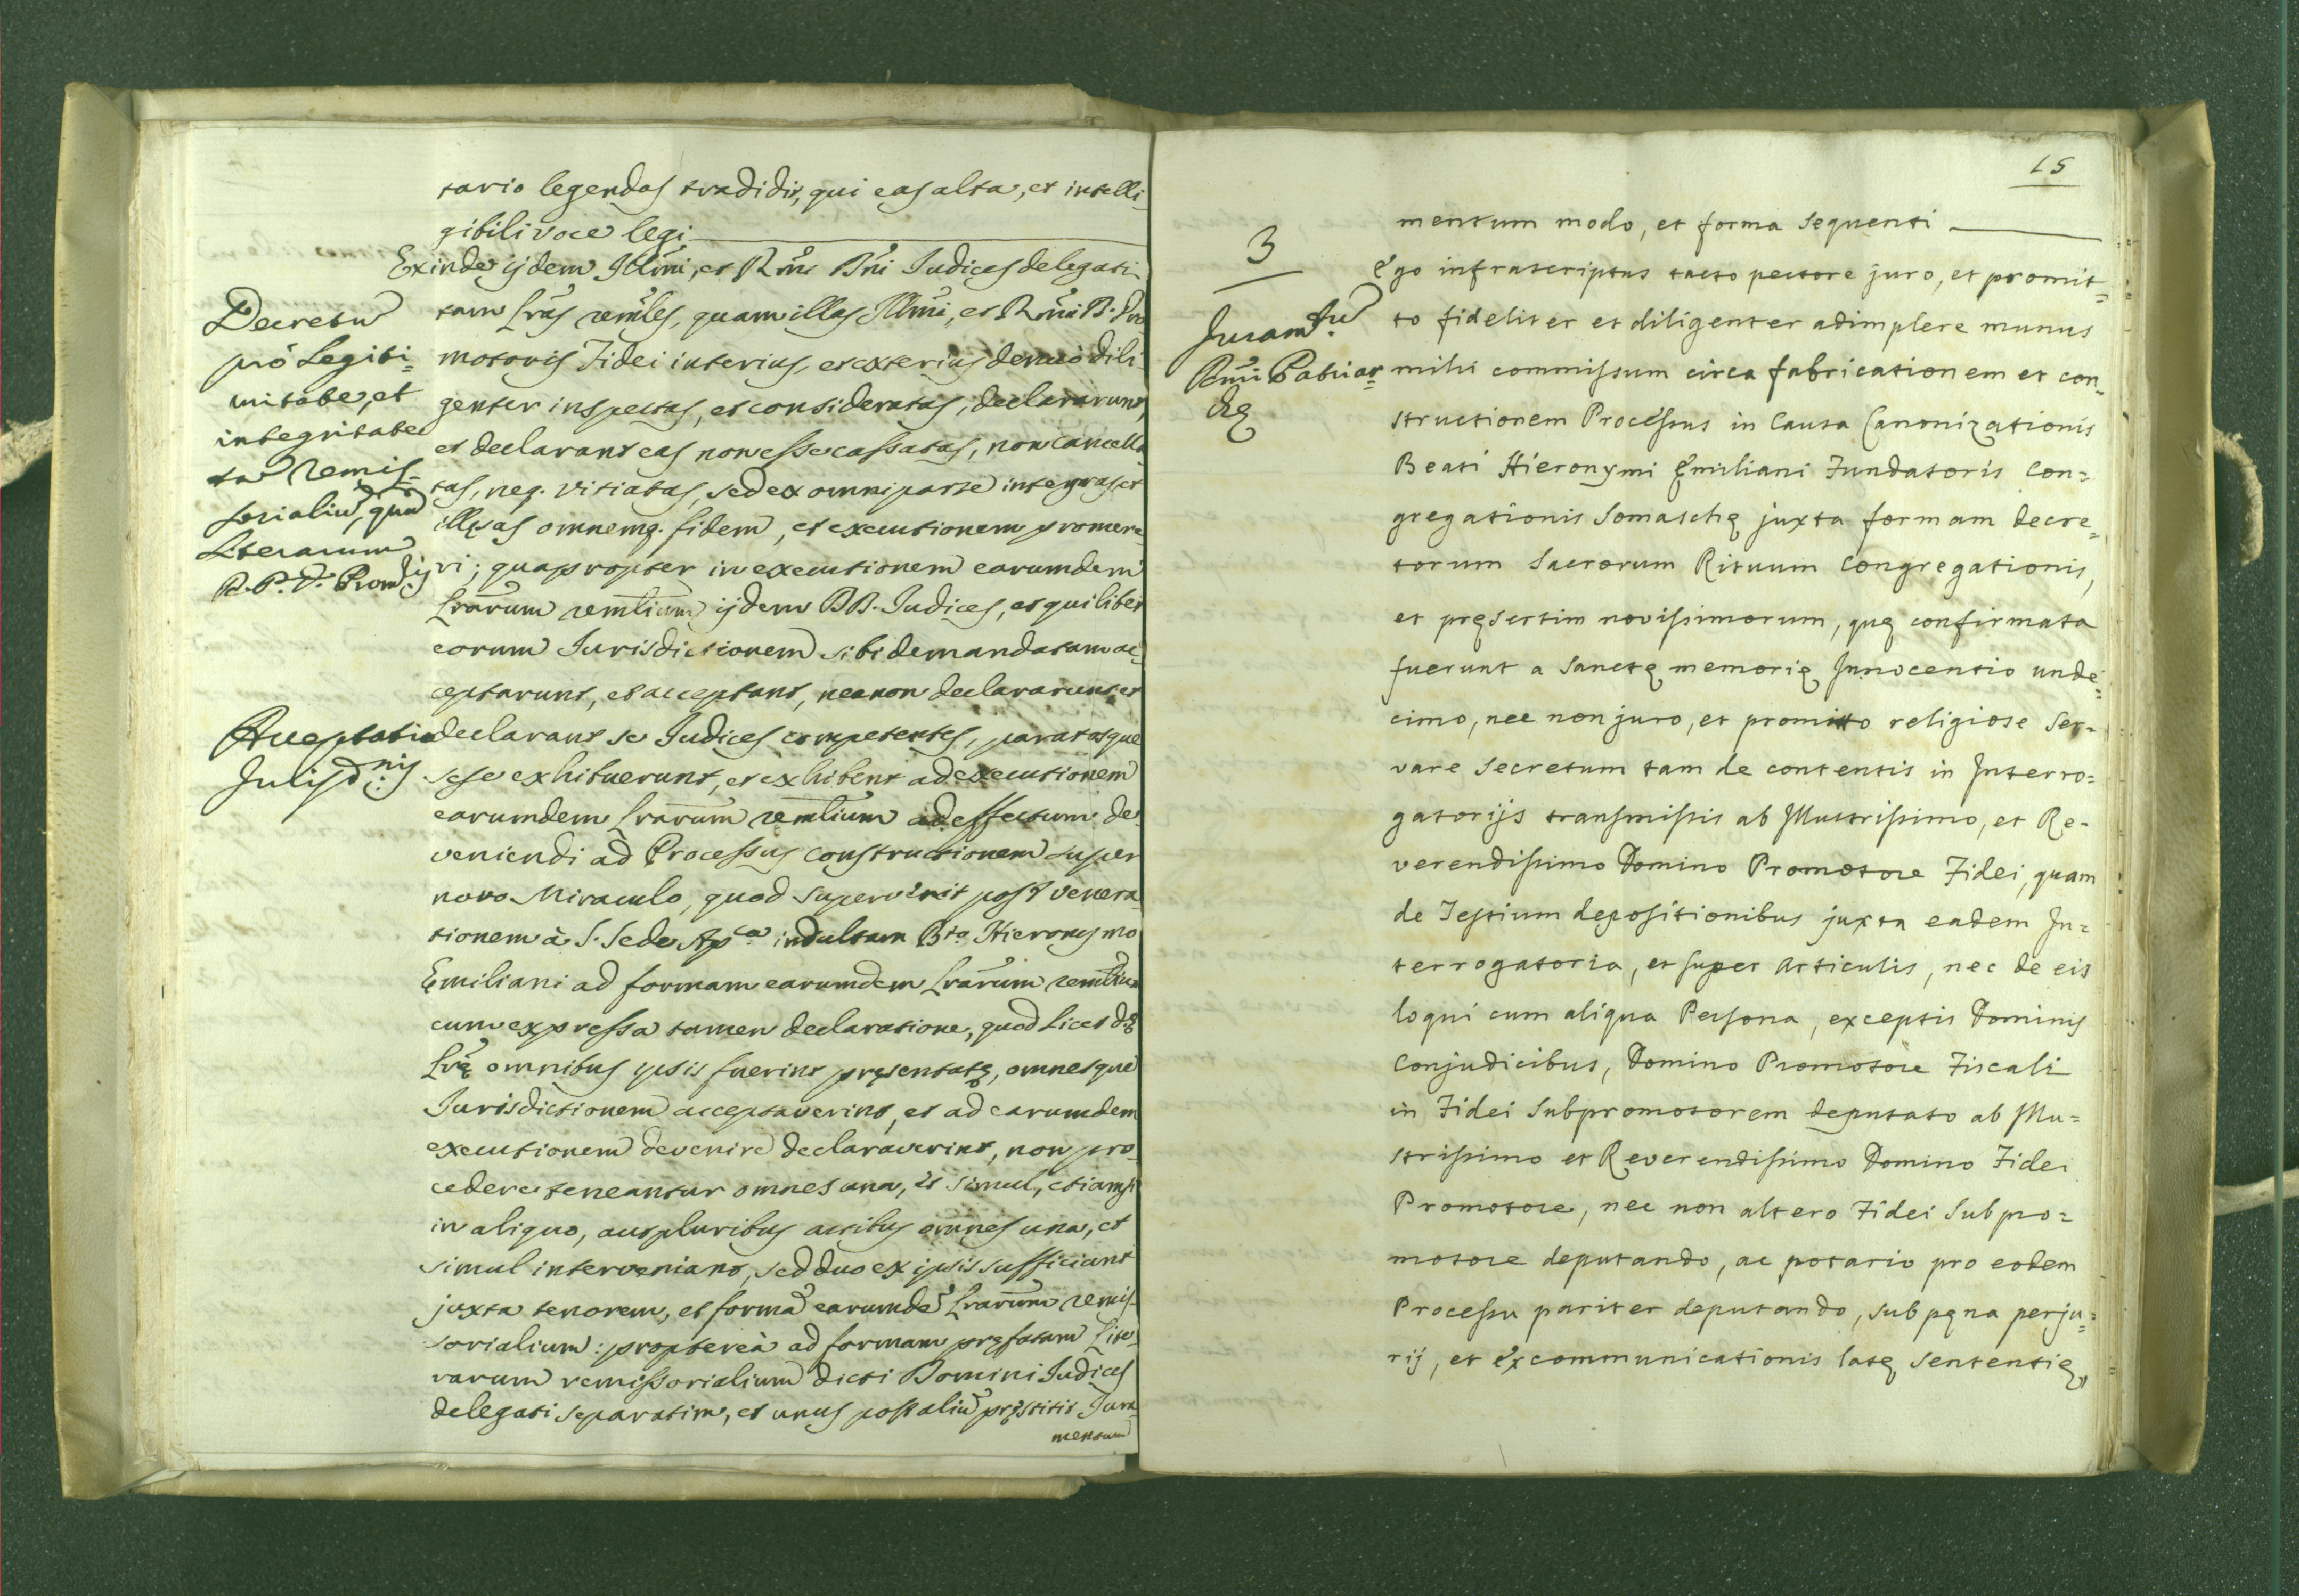 tario legendas tradidit, qui eas alta, et intelli-
gibili voce legi
Exinde ijdem Illmi, et Rmi DDni Judices delegati
tam Lras remles, quam illas Illmi, et Rmi D. Pro
motoris Fidei interius, et exterius denuò dili-
genter inspectas, et consideratas, declararunt,
et declarant eas non esse cassatas, non cancella
tas, neq. vitiatas, sed ex omni parte integras, et
illęsas omnemq. fidem, et executionem promere-
ri; quapropter in executionem earumdem
Lrarum remlium ijdem DD. Judices, et quilibet
eorum Jurisdictionem sibi demandatam ac-
ceptarunt, et acceptant, necnon declararunt et
declarant se Judices competentes, paratosque
sese exhibuerunt, et exhibent ad executionem
earumdem Lrarum remlium ad effectum de-
veniendi ad Processus constructionem super
novo Miraculo, quod supervenit post venera-
tionem à S. Sede Apca. indultam Bto. Hieronymo
Ęmiliani ad formam earumdem Lrarum remlium
cum expressa tamen declaratione, quod licet dę
Lrę omnibus ipsis fuerint pręsentatę, omnesque
Jurisdictionem acceptaverint, et ad earumdem
executionem devenire declaraverint, non pro-
cedere teneantur omnes una, et simul, etiamsi
in aliquo, aut pluribus actibus omnes una, et
simul interveniant, sed duo ex ipsis sufficiant
juxta tenorem, et formã earumdẽ Lrarum remis-
sorialium: proptereà ad formam pręfatam Lite-
rarum remissorialium dicti Domini Judices
delegati separatim, et unus post aliũ pręstitit Jura-
mentum
Decretũ
prò Legiti=
mitate, et
integritate
tã remis=
sorialiũ, quã
Literarum
R. P. D. Promris
Acceptatio
Jurisdnis
15
mentum modo, et forma sequenti
3
Juramtũ
Rmi Patriar=
chę
Ego infrascriptus tacto pectore juro, et promit=
to fideliter et diligenter adimplere munus
mihi commissum circa fabricationem et con=
structionem Processus in Causa Canonizationis
Beati Hieronymi Ęmiliani Fundatoris Con=
gregationis Somaschę juxta formam decre=
torum Sacrorum Rituum Congregationis,
et pręsertim novissimorum, quę confirmata
fuerunt a Sanctę memorię Innocentio unde=
cimo, nec non juro, et promitto religiose ser-
vare secretum tam de contentis in Interro=
gatorijs transmissis ab Illustrissimo, et Re-
verendissimo Domino Promotore Fidei, quam
de Testium depositionibus juxta eadem In=
terrogatoria, et super Articulis, nec de eis
loqui cum aliqua Persona, exceptis Dominis
Conjudicibus, Domino Promotore Fiscali
in Fidei Subpromotorem deputato ab Illu=
strissimo et Reverendissimo Domino Fidei
Promotore, nec non altero Fidei Subpro=
motore deputando, ac notario pro eodem
Processu pariter deputando, sub pęna perju=
rij, et excommunicationis latę sententię,